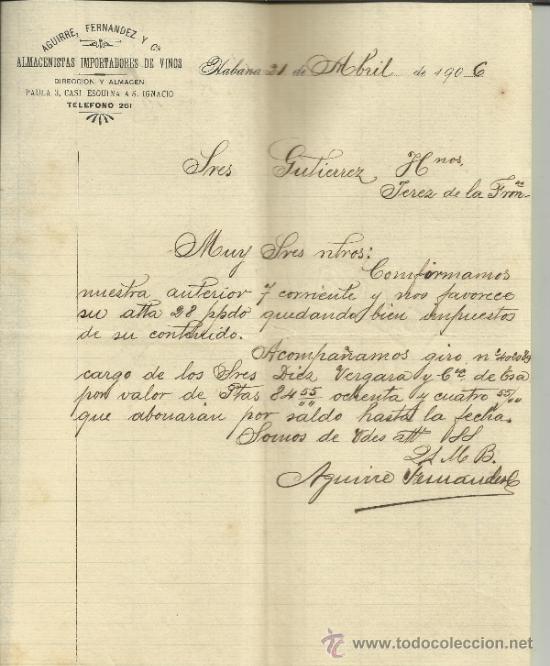 AGUIRRE, FERNANDEZ Y Ca
ALMACENISTAS IMPORTADORES DE VINOS
DIRECCION Y ALMACEN
PAULA 3, CASI ESQUINA A S. IGNACIO
TELEFONO 261
Habana 21 de Abril de 1906
Sres Gutierrez Hnos.
Jerez de la Fron.ra
Muy Sres ntros:
Comfirmamos
nuestra anterior 7 corriente y nos favorece
su atta 28 ppdo quedando bien impuestos
de su contenido.
Acompañamos giro nº
cargo de los Sres Diez Vergara y Ca. de Esa
por valor de Ptas 84 55/00 ochenta y cuatro 55/00
que abonaran por saldo hasta la fecha.
Somos de Vdes att SS
Q S M B.
Aguirre Fernandez C
todocoleccion
www.todocoleccion.net